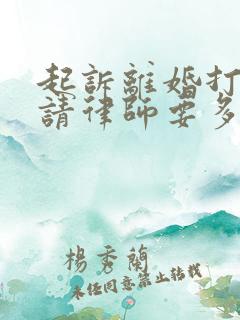 起訴離婚打
請律師要多
楊秀蘭
未经同意禁止转载